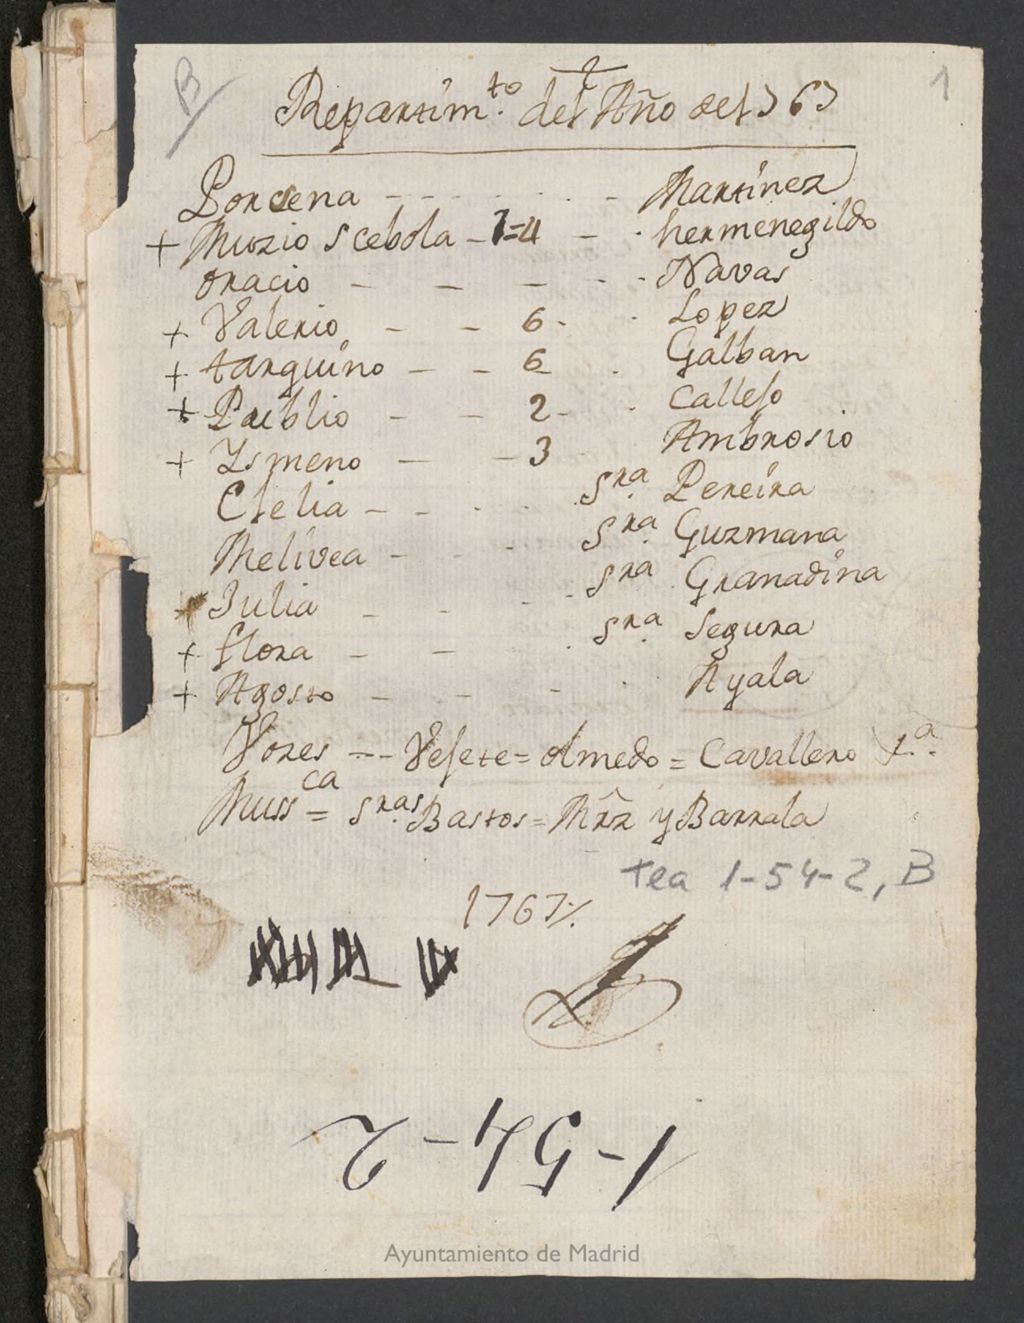 B
1
Repartim.to del Año de 1767
Porcena - - - - - - Martinez
+ Muzio Scebola - 1=4 - - hermenegildo
Oracio - - - - - Navas
+ Valerio - - 6 - - Lopez
+ tarquino - - 6 - Galban
+ Publio - - 2 - - Callejo
+ Ismeno - - 3 Ambrosio
Clelia - - - - Sra. Pereira
Melivea - - - Sra. Guzmana
+ Julia - - - - Sra Granadina
+ flora - - - Sra. Segura
+ Agosto - - - - Ayala
Vozes --- Vejete = Olmedo = Cavallero 1.a
Mussca = Sras Bastos = Mrz y Barrala
tea 1-54-2, B
1767
1-54-2
Ayuntamiento de Madrid